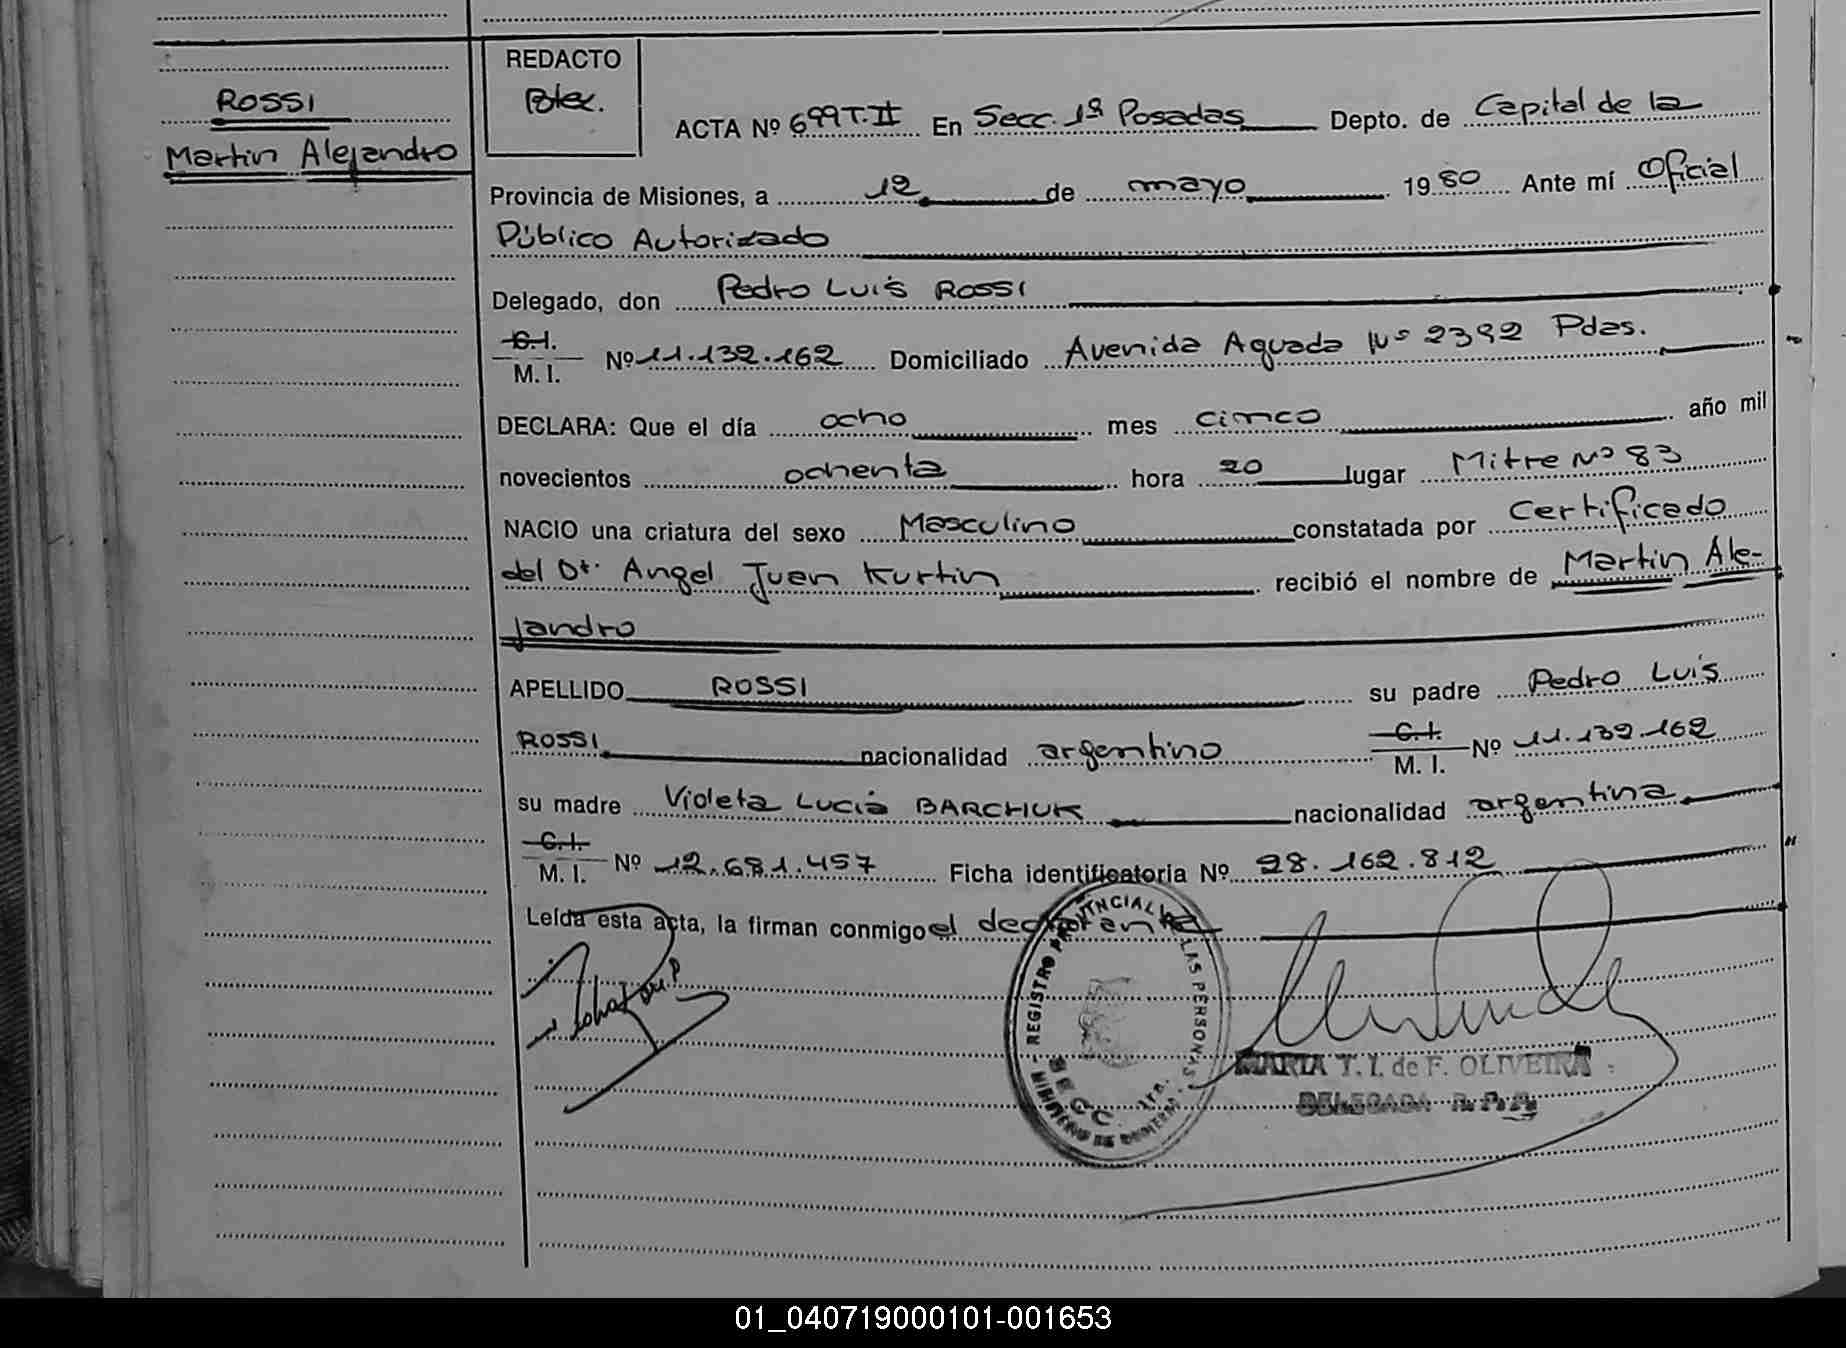 ROSSI
Martin Alejandro
REDACTO
ACTA Nº 699 T. II En Secc. 1ª Posadas Depto. de Capital de la
Provincia de Misiones, a 12 de mayo 1980 Ante mí Oficial
Público Autorizado
Delegado, don Pedro Luis ROSSI
C.I.
M. I. Nº 11.132.162 Domiciliado Avenida Aguado Nº 2392 Pdas.
DECLARA: Que el día ocho mes cinco año mil
novecientos ochenta hora 20 lugar Mitre Nº 83
NACIO una criatura del sexo Masculino constatada por Certificado
del Dr. Angel Juan Kurtin recibió el nombre de Martin Ale-
jandro
APELLIDO ROSSI su padre Pedro Luis
ROSSI nacionalidad argentino C.I. M. I. Nº 11.132.162
su madre Violeta Lucia BARCHUK nacionalidad argentina
C.I.
M. I. Nº 12.681.457 Ficha identificatoria Nº 28.162.812
Leída esta acta, la firman conmigo el declarante
REGISTRO PROVINCIAL DE LAS PERSONAS
SECC. 1ra.
MINISTERIO DE GOBIERNO
MARIA T. I. de F. OLIVEIRA
DELEGADA R. P. P.
01_040719000101-001653